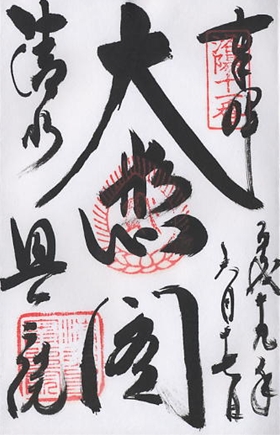 奉拝
洛陽十一番
平成十九年
六月十七日
大悲閣
清水
奥之院